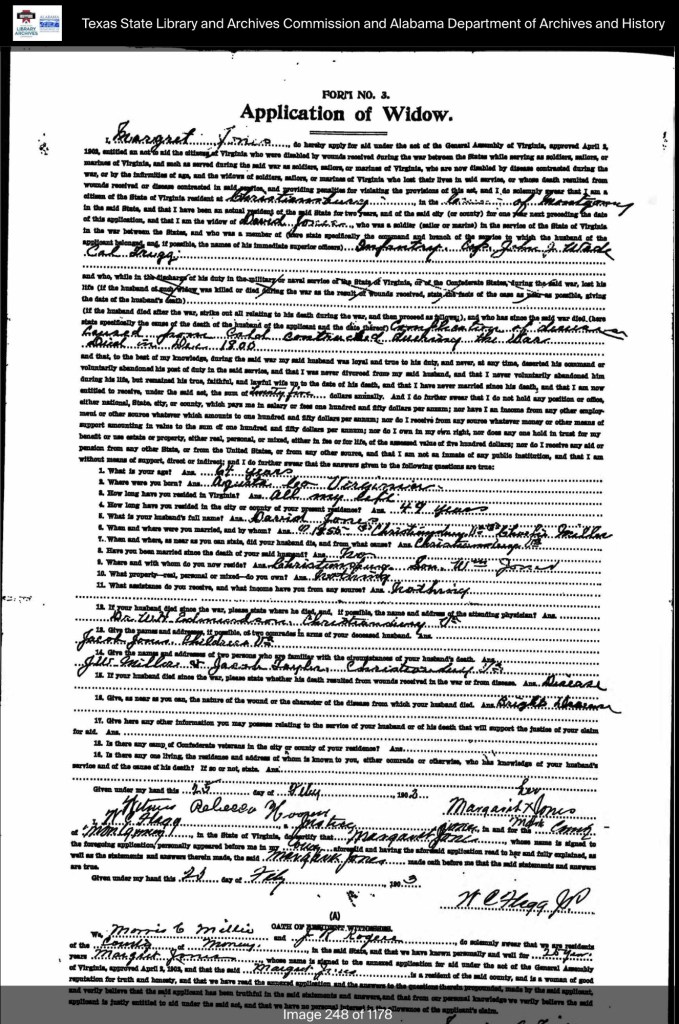 Texas State Library and Archives Commission and Alabama Department of Archives and History
FORM NO. 3.
Application of Widow.
I, Margret Jones, do hereby apply for aid under the act of the General Assembly of Virginia, approved April 2,
1902, entitled an act to aid the citizens of Virginia who were disabled by wounds received during the war between the States while serving as soldiers, sailors, or
marines of Virginia, and such as served during the said war as soldiers, sailors, or marines of Virginia, who are now disabled by disease contracted during the
war, or by the infirmities of age, and the widows of soldiers, sailors, or marines of Virginia who lost their lives in said service, or whose death resulted from
wounds received or disease contracted in said service, and providing penalties for violating the provisions of this act, and I do solemnly swear that I am a
citizen of the State of Virginia resident at Christiansburg, in the of Montgomery
in the said State, and that I have been an actual resident of the said State for two years, and of the said city (or county) for one year next preceding the date
of this application, and that I am the widow of David Jones, who was a soldier (sailor or marine) in the service of the State of Virginia
in the war between the States, and who was a member of (here state specifically the command and branch of the service to which the husband of the
applicant belonged, and, if possible, the names of his immediate superior officers) Infantry Cap. John J. Wade
Col Trigg
and who, while in the discharge of his duty in the military or naval service of the State of Virginia, or of the Confederate States, during the said war, lost his
life (if the husband of such widow was killed or died during the war as the result of wounds received, state the facts of the case as near as possible, giving
the date of the husband's death)
(If the husband died after the war, strike out all relating to his death during the war, and then proceed as follows), and who has since the said war died, (here
state specifically the cause of the death of the husband of the applicant and the date thereof) Complication of diseases
Caused from Cold contracted during the War
Died in Dec.
and that, to the best of my knowledge, during the said war my said husband was loyal and true to his duty, and never, at any time, deserted his command or
voluntarily abandoned his post of duty in the said service, and that I was never divorced from my said husband, and that I never voluntarily abandoned him
during his life, but remained his true, faithful, and lawful wife up to the date of his death, and that I have never married since his death, and that I am now
entitled to receive, under the said act, the sum of twenty five dollars annually. And I do further swear that I do not hold any position or office,
either national, State, city, or county, which pays me in salary or fees one hundred and fifty dollars per annum; nor have I an income from any other employ-
ment or other source whatever which amounts to one hundred and fifty dollars per annum; nor do I receive from any source whatever money or other means of
support amounting in value to the sum of one hundred and fifty dollars per annum; nor do I own in my own right, nor does any one hold in trust for my
benefit or use estate or property, either real, personal, or mixed, either in fee or for life, of the assessed value of five hundred dollars; nor do I receive any aid or
pension from any other State, or from the United States, or from any other source, and that I am not an inmate of any public institution, and that I am
without means of support, direct or indirect; and I do further swear that the answers given to the following questions are true:
1. What is your age? Ans. years
2. Where were you born? Ans. Agusta Co Verginia
3. How long have you resided in Virginia? Ans. All my life
4. How long have you resided in the city or county of your present residence? Ans. 49 years
5. What is your husband's full name? Ans. David Jones
6. When and where were you married, and by whom? Ans. Christiansburg Va Charlie Miller
7. When and where, as near as you can state, did your husband die, and from what cause? Ans. Christiansburg Va
8. Have you been married since the death of your said husband? Ans. No
9. Where and with whom do you now reside? Ans. Christiansburg Son Wm Jones
10. What property—real, personal or mixed—do you own? Ans. Nothing
11. What assistance do you receive, and what income have you from any source? Ans. Nothing
12. If your husband died since the war, please state where he died, and, if possible, the name and address of the attending physician? Ans.
Dr. W.H. Edmundson, Christiansburg Va
13. Give the names and addresses, if possible, of two comrades in arms of your deceased husband. Ans.
Jacob Jones Childress Va
14. Give the names and addresses of two persons who are familiar with the circumstances of your husband's death. Ans.
J.W. Miller & Jacob Taylor. Christiansburg Va.
15. If your husband died since the war, please state whether his death resulted from wounds received in the war or from disease. Ans. Disease
16. Give, as near as you can, the nature of the wound or the character of the disease from which your husband died. Ans. Brights Disease
17. Give here any other information you may possess relating to the service of your husband or of his death that will support the justice of your claim
for aid. Ans.
18. Is there any camp of Confederate veterans in the city or county of your residence? Ans.
19. Is there any one living, the residence and address of whom is known to you, either comrade or otherwise, who has knowledge of your husband's
service and of the cause of his death? If so or not, state. Ans.
Given under my hand this 23 day of Feby, 1903
her
Witness Rebecca Hooper Margaret X Jones
mark
I, W C Flagg, a Justice Peace, in and for the County
of Montgomery, in the State of Virginia, do certify that Margaret Jones, whose name is signed to
the foregoing application, personally appeared before me in my County aforesaid and having the aforesaid application read to her and fully explained, as
well as the statements and answers therein made, the said Margaret Jones made oath before me that the said statements and answers
are true.
Given under my hand this 23 day of Feby 1903
W C Flagg JP
(A)
OATH OF RESIDENT WITNESSES.
We, Morris C Millis and J R Rogers, do solemnly swear that we are residents
of the County of in the said State, and that we have known personally and well for
years Margret Jones whose name is signed to the annexed application for aid under the act of the General Assembly
of Virginia, approved April 2, 1902, and that the said Margret Jones is a resident of the said county, and is a woman of good
reputation for truth and honesty, and that we have read the annexed application and the answers to the questions therein propounded, made by the said applicant,
and verily believe that the said applicant has been truthful in the said statements and answers, and that from our personal knowledge we verily believe the said
applicant is justly entitled to aid under the said act, and that we have no personal interest in the allowance of the applicant's claim.
Image 248 of 1178